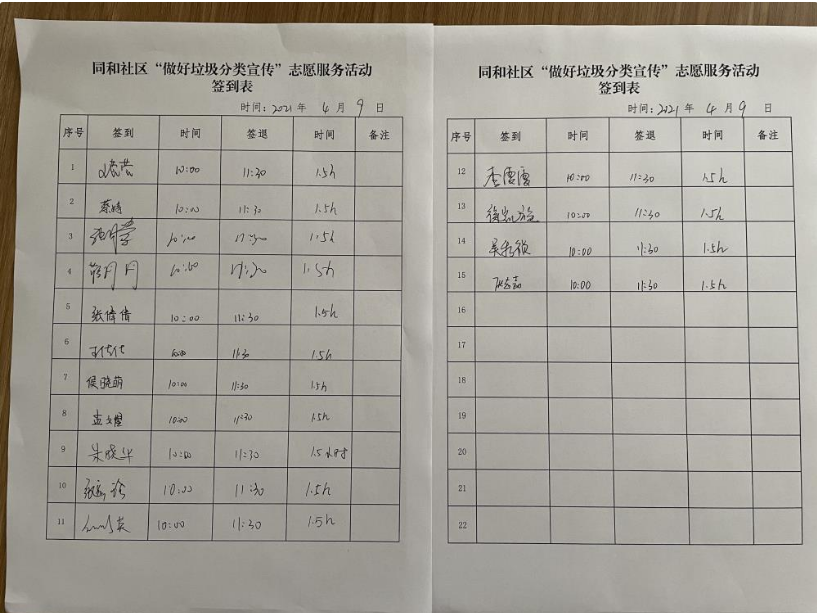 同和社区“做好垃圾分类宣传”志愿服务活动
签到表
时间：2021 年 4 月 9 日
序号 签到 时间 签退 时间 备注
1 10:00 11:30 1.5h
2 10:00 11:30 1.5h
3 10:00 11:30 1.5h
4 10:00 11:30 1.5h
5 张倩倩 10:00 11:30 1.5h
6 10:00 11:30 1.5h
7 侯晓萌 10:00 11:30 1.5h
8 10:00 11:30 1.5h
9 朱晓华 10:00 11:30 1.5小时
10 10:00 11:30 1.5h
11 10:00 11:30 1.5h
同和社区“做好垃圾分类宣传”志愿服务活动
签到表
时间：2021 年 4 月 9 日
序号 签到 时间 签退 时间 备注
12 10:00 11:30 1.5h
13 10:00 11:30 1.5h
14 10:00 11:30 1.5h
15 10:00 11:30 1.5h
16
17
18
19
20
21
22